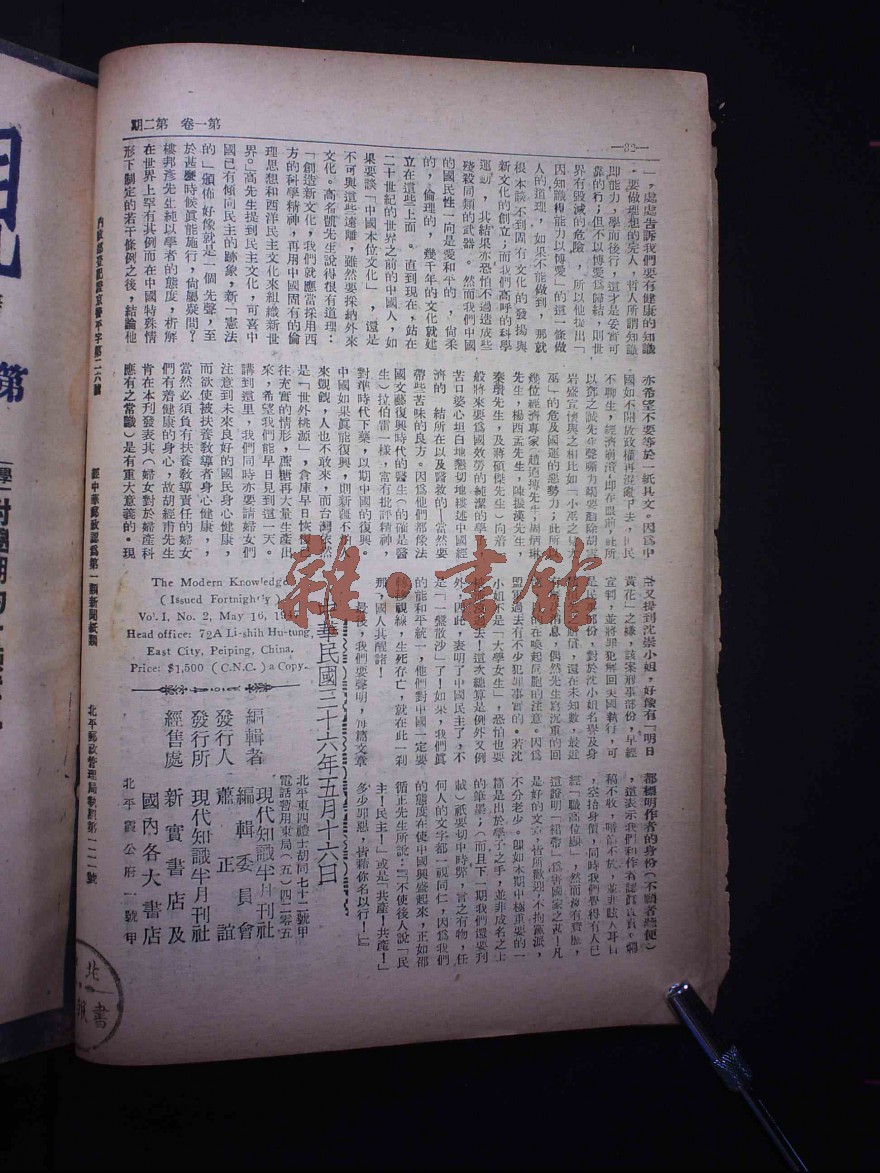 第一卷 第二期
—32—
一，處處告訴我們要有健康的知識
，要做理想的完人，哲人所謂知識
即能力，學而後行，這才是妥實可
靠的行；但不以博愛爲歸結，則世
界有毀滅的危險，所以他提出「
因知識得能力以博愛」的這一條做
人的道理，如果不能做到，那就
根本談不到固有文化的發揚與
新文化的創立；而我們高呼的科學
運動，其結果亦恐怕不過造成些
殘殺同類的武器。然而我們中國
的國民性一向是愛和平的，尙柔
的，倫理的，幾千年的文化就建
立在這些上面。直到現在，站在
二十世紀的世界之前的中國人，如
果要談「中國本位文化」，還是
不可與這些遠離，雖然要採納外來
文化。高名凱先生說得很有道理：
「創造新文化，我們就應當採用西
方的科學精神，再用中國固有的倫
理思想和西洋民主文化來組織新世
界。」高先生提到民主文化，可喜中
國已有傾向民主的跡象，新「憲法
的」頒佈好像就是一個先聲，至
於甚麼時候眞能施行，尙屬疑問？
樓邦彥先生純以學者的態度，析解
在世界上罕有其例而在中國特殊情
形下制定的若干條例之後，結論他
亦希望不要等於一紙具文。因爲中
國如不開放政權再混亂下去，
不聊生，經濟崩潰即在眼前，此所
以鄧之誠先生聲嘶力竭要翦除胡
岩盛宣懷與之相比如「小巫之見大
巫」的危及國運的惡勢力；此所以
幾位經濟專家（趙迺搏先生，
先生，楊西孟先生，陳振漢先生，
秦瓚先生，及蔣碩傑先生）向着一
般將來要爲國效勞的純潔的學子
苦口婆心坦白地懇切地樓述中國經
濟的 結所在以及醫救的 當然要
帶些苦味的良方。因爲他們都像法
國文藝復興時代的醫生（的確是醫
生）拉伯雷一樣，富有批評精神，
對準時代下藥，以期中國的復興。
中國如果眞能復興，則新疆不怕人
來覬覦，人也不敢來，而台灣依然
是「世外桃源」，倉庫早日恢復已
往充實的情形，蔗糖再大量生產出
來，希望我們能早日見到這一天。
講到這里，我們同時亦要請婦女們
注意到未來良好的國民身心健康，
而欲使被扶養敎導者身心健康，，
當然必須負有扶養敎導責任的婦女
們有着健康的身心，故胡經甫先生
肯在本刊發表其（婦女對於婦產科
應有之常識）是有重大意義的。現
又提到沈崇小姐，好像有「明日
黃花」之嫌，該案刑事部份，早經
宣判，並將罪犯解回美國執行，可
是民事部份，對於沈小姐名譽及身
賠償，還在未知數，最近
消息，偶然先生寫沉重的回
的在喚起同胞的注意。因爲
盟軍過去有不少犯罪事實的。若沈
小姐不是「大學女生」，恐怕也要
過去！這次總算是例外又例
外，因此，表明了中國民主了，不
是「一盤散沙」了！如果，我們眞
的能和平統一，他們對中國一定要
轉移視線，生死存亡，就在此一剎
那，國人其醒諸！
最後，我們要聲明，每篇文章
都標明作者的身份（不願者聽便）
，這表示我們和作者認眞負責。
稿不收，暗箭不放，並非眩人耳目
，容抬身價，同時我們覺得有人已
經「職高位顯」，然而擁有賣座，
還證明「招帶」爲害國家之甚！凡
是好的文章，皆所歡迎，不拘黨派，
不分老少。卽如本期中極重要的一
篇是出於學子之手，並非成名之士
的筆墨；（而且下一期我們還要刋
載）祇要切中時弊，言之有物，任
何人的文字都一視同仁，因爲我們
的態度在使中國興盛起來，正如邵
循正先生所說：「不使後人說「民
主！民主！」或是「共產！共產！」
多少罪惡，皆藉你名以行！」
The Modern Knowledge
(Issued Fortnightly)
Vol. I, No. 2, May 16, 1947
Head office: 72A Li-shih Hu-tung,
East City, Peiping, China.
Price: $1,500 (C.N.C.) a Copy.
中華民國三十六年五月十六日
編輯者 現代知識半月刊社
編輯委員會
發行人 蕭正誼
發行所 現代知識半月刊社
北平東四禮士胡同七十二號甲
電話暫用東局（五）四二零五
經售處 新實書店及
國內各大書店
北平霞公府一號甲
內政部登記證京警平字第二六號
經中華郵政認爲第一類新聞紙類
北平郵政管理局執照第一一一號
雜·書館
第
北
書